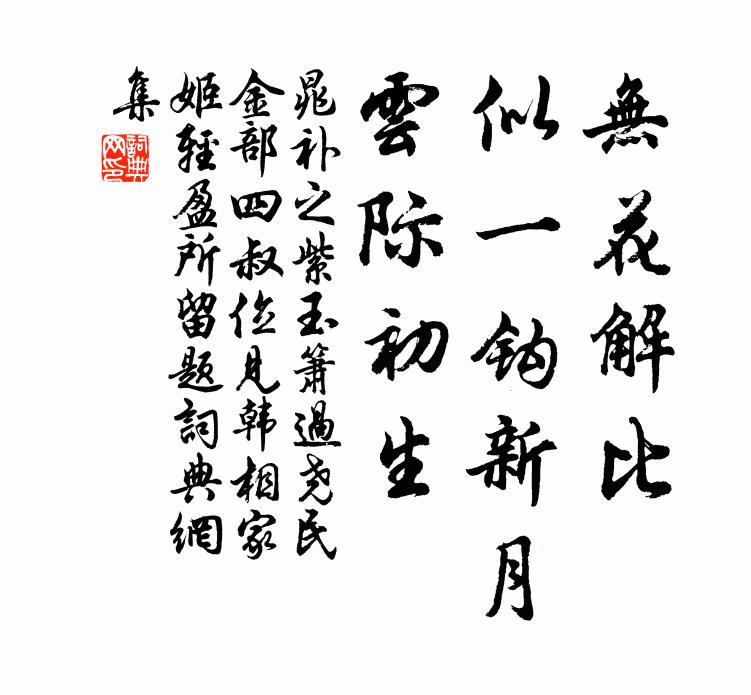 無花解比
似一鈎新月
雲際初生
晁补之紫玉簫過尧民
金部四叔位見韩相家
姬輕盈所留题詞典網
集
詞典網印